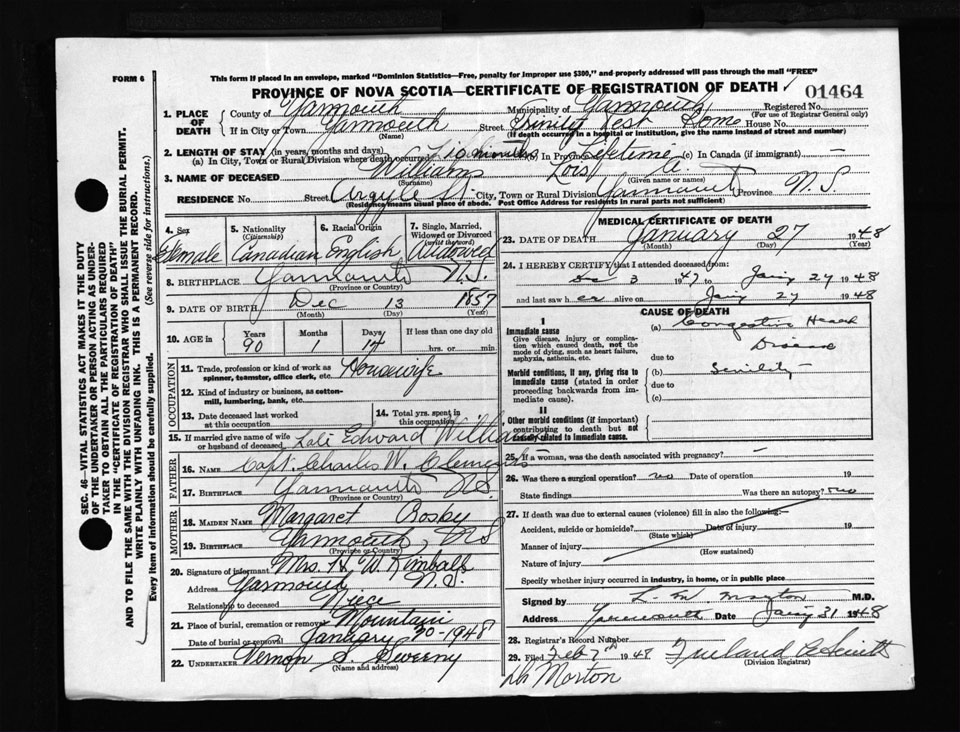 FORM 6
This form if placed in an envelope, marked "Dominion Statistics—Free, penalty for improper use $300," and properly addressed will pass through the mail "FREE"
PROVINCE OF NOVA SCOTIA—CERTIFICATE OF REGISTRATION OF DEATH
01464
1. PLACE OF DEATH County of Yarmouth Municipality of Yarmouth Registered No.
(For use of Registrar General only)
If in City or Town Yarmouth Street Trinity Rest Home House No.
(Name) (If death occurred in a hospital or institution, give the name instead of street and number)
2. LENGTH OF STAY (in years, months and days)
(a) In City, Town or Rural Division where death occurred months (b) In Province Lifetime (c) In Canada (if immigrant) —
3. NAME OF DECEASED Williams Lois A.
(Surname) (Given name or names)
RESIDENCE No. Street Argyle St. City, Town or Rural Division Yarmouth Province N.S.
(Residence means usual place of abode. Post Office Address for residents in rural parts not sufficient)
4. Sex Female
5. Nationality (Citizenship) Canadian
6. Racial Origin English
7. Single, Married, Widowed or Divorced (write the word) Widowed
8. BIRTHPLACE Yarmouth N.S.
(Province or Country)
9. DATE OF BIRTH Dec 13 1857
(Month) (Day) (Year)
10. AGE in Years Months Days If less than one day old
90 1 14 hrs. or min.
OCCUPATION
11. Trade, profession or kind of work as spinner, teamster, office clerk, etc. Housewife
12. Kind of industry or business, as cotton-mill, lumbering, bank, etc.
13. Date deceased last worked at this occupation
14. Total yrs. spent in this occupation
15. If married give name of wife or husband of deceased Late Edward Williams
FATHER
16. NAME Capt. Charles W. Clements
17. BIRTHPLACE Yarmouth N.S.
(Province or Country)
MOTHER
18. MAIDEN NAME Margaret Rosby
19. BIRTHPLACE Yarmouth, N.S.
(Province or Country)
20. Signature of informant Mrs. H. W. Kimball
Address Yarmouth N.S.
Relationship to deceased Niece
21. Place of burial, cremation or removal Mountain
Date of burial or removal January 30-1948
22. UNDERTAKER Vernon S. Sweeny
(Name and address)
MEDICAL CERTIFICATE OF DEATH
23. DATE OF DEATH January 27 1948
(Month) (Day) (Year)
24. I HEREBY CERTIFY that I attended deceased from:
Dec 3 1947 to Jany 27 1948
and last saw her alive on Jany 27 1948
CAUSE OF DEATH
I
Immediate cause
Give disease, injury or complication which caused death, not the mode of dying, such as heart failure, asphyxia, asthenia, etc.
(a) Congestive Heart Disease
due to
Morbid conditions, if any, giving rise to immediate cause (stated in order proceeding backwards from immediate cause).
(b) Senility
due to
(c)
II
Other morbid conditions (if important) contributing to death but not causally related to immediate cause.
25. If a woman, was the death associated with pregnancy? —
26. Was there a surgical operation? no Date of operation 19
State findings Was there an autopsy? no
27. If death was due to external causes (violence) fill in also the following:—
Accident, suicide or homicide? Date of injury 19
(State which)
Manner of injury
(How sustained)
Nature of injury
Specify whether injury occurred in industry, in home, or in public place
Signed by L. M. M.D.
Address Yarmouth Date Jany 31 1948
28. Registrar's Record Number
29. Filed Feb 7th 1948
(Division Registrar)
Morton
SEC. 46—VITAL STATISTICS ACT MAKES IT THE DUTY OF THE UNDERTAKER OR PERSON ACTING AS UNDERTAKER TO OBTAIN ALL THE PARTICULARS REQUIRED IN THE "CERTIFICATE OF REGISTRATION OF DEATH" AND TO FILE THE SAME WITH THE DIVISION REGISTRAR WHO SHALL ISSUE THE BURIAL PERMIT.
WRITE PLAINLY WITH UNFADING INK. THIS IS A PERMANENT RECORD.
Every item of information should be carefully supplied. (See reverse side for instructions.)